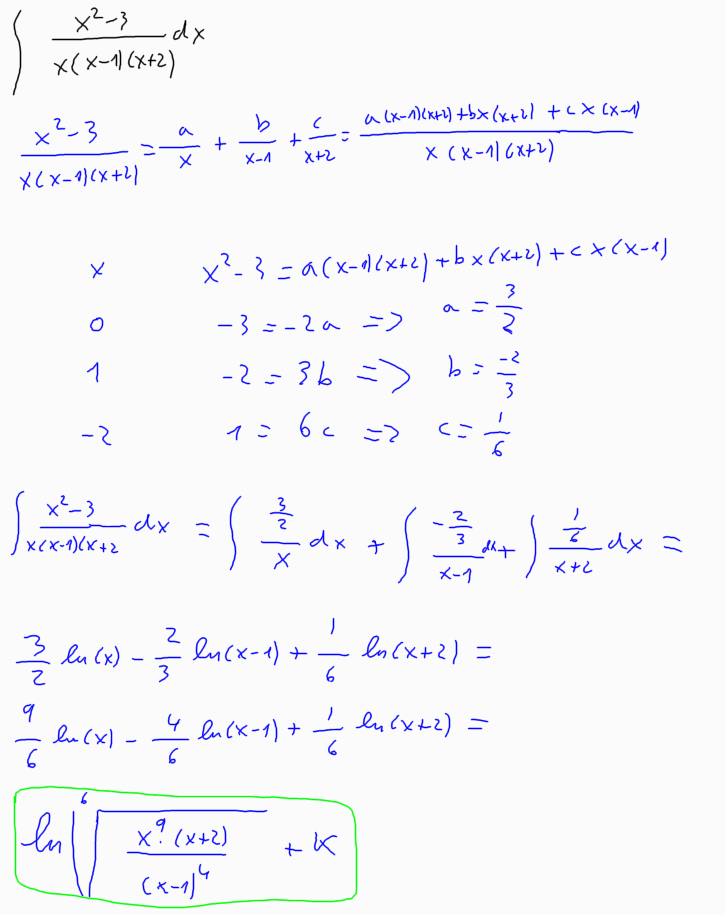 ∫ (x²-3)/(x(x-1)(x+2)) dx
(x²-3)/(x(x-1)(x+2)) = a/x + b/(x-1) + c/(x+2) = (a(x-1)(x+2)+bx(x+2)+cx(x-1))/(x(x-1)(x+2))
x x²-3 = a(x-1)(x+2)+bx(x+2)+cx(x-1)
0 -3 = -2a => a = 3/2
1 -2 = 3b => b = -2/3
-2 1 = 6c => c = 1/6
∫ (x²-3)/(x(x-1)(x+2 dx = ∫ (3/2)/x dx + ∫ (-2/3)/(x-1) dx + ∫ (1/6)/(x+2) dx =
3/2 ln(x) - 2/3 ln(x-1) + 1/6 ln(x+2) =
9/6 ln(x) - 4/6 ln(x-1) + 1/6 ln(x+2) =
ln ⁶√(x⁹·(x+2)/(x-1)⁴) + K